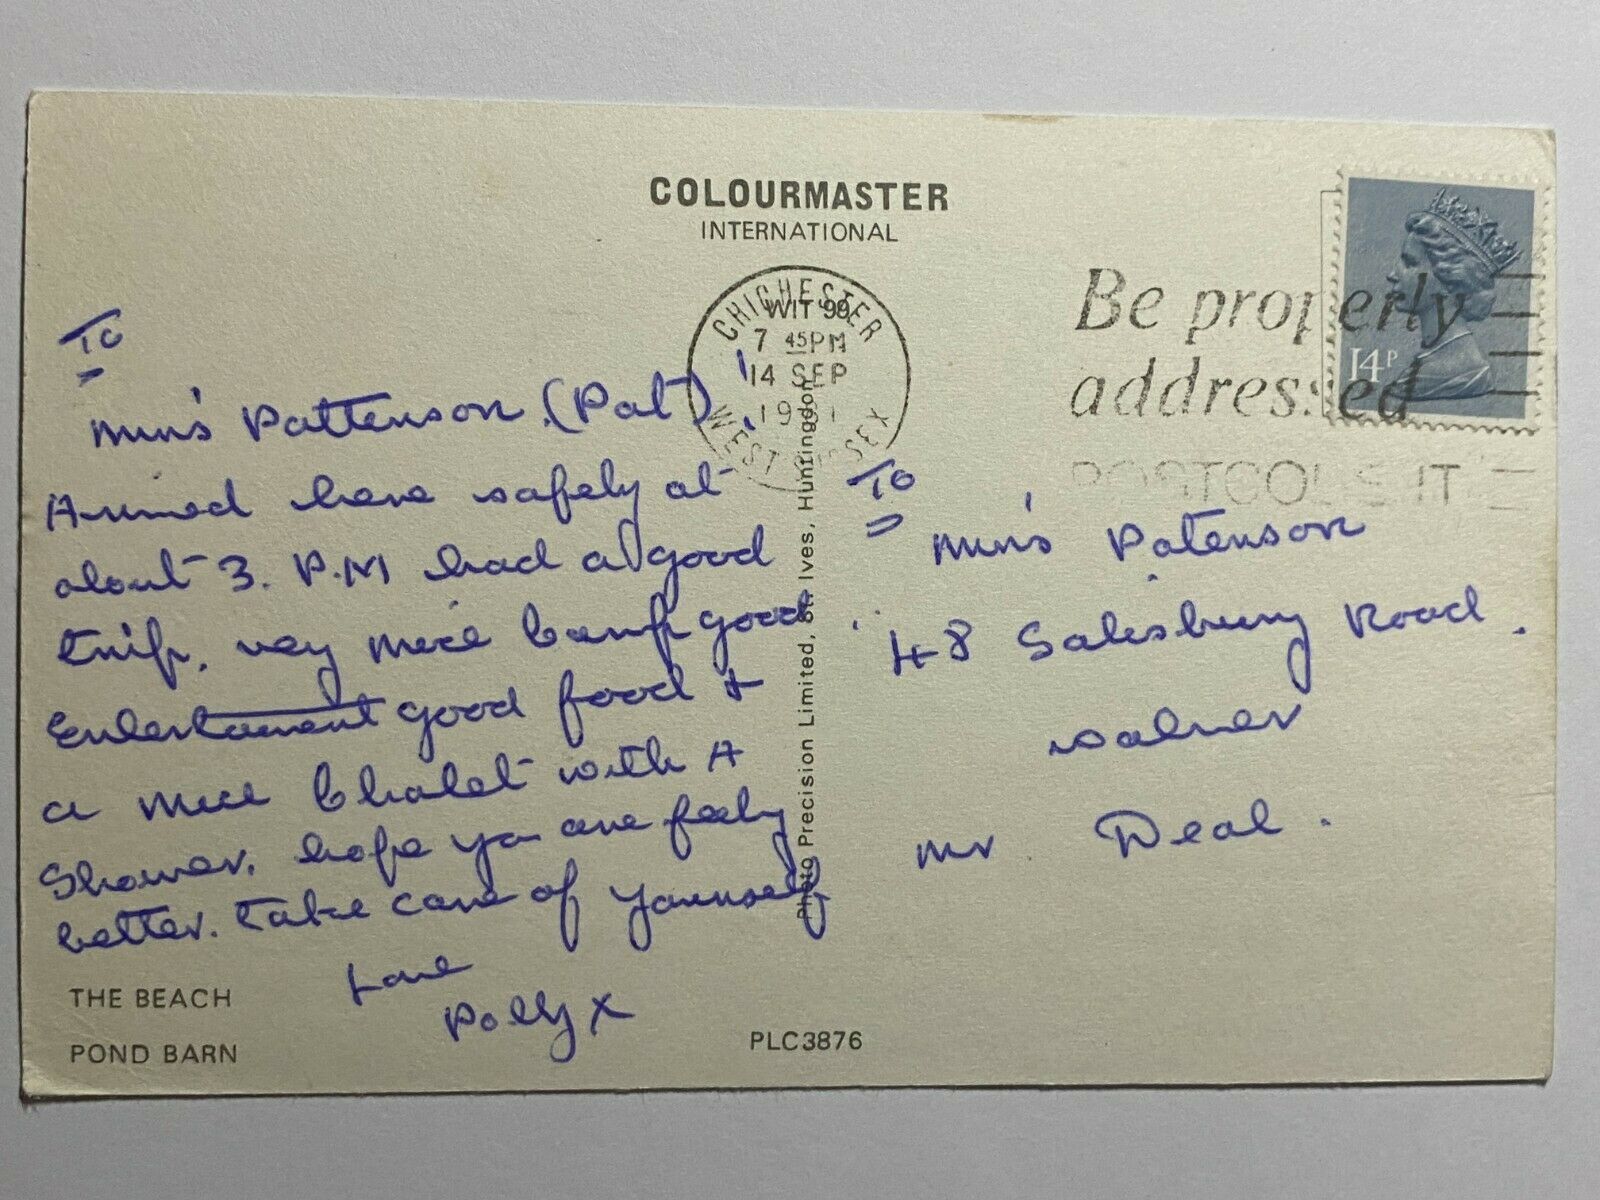 COLOURMASTER
INTERNATIONAL
CHICHESTER
WIT 99
7 45PM
14 SEP
WEST SUSSEX
Be properly
addressed
14P
To
Pattenson (Pat)
Arrived here safely at
about 3. P.M had a good
trip, very nice camp good
Entertament good food +
a nice Chalet with A
Shower. hope you are feely
better. take care of yourself
Love
Polly X
To
Patenson
48 Salisbury Road
Walmer
Nr Deal.
THE BEACH
POND BARN
PLC3876
Photo Precision Limited, St. Ives, Huntingdon